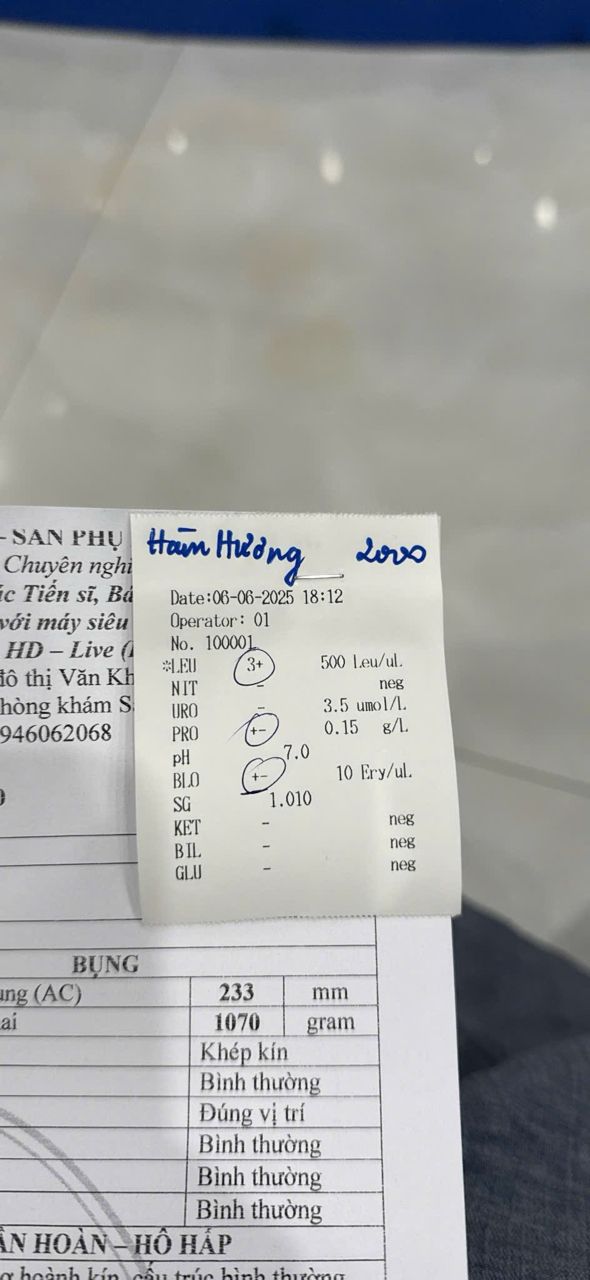 - SẢN PHỤ
Chuyên nghi
ác Tiến sĩ, Bá
với máy siêu
HD – Live (
đô thị Văn Kh
hòng khám S
946062068
Hàm Hương 2000
Date:06-06-2025 18:12
Operator: 01
No. 100001
*LEU 3+ 500 Leu/uL
NIT - neg
URO - 3.5 umol/L
PRO +- 0.15 g/L
pH 7.0
BLO +- 10 Ery/uL
SG 1.010
KET - neg
BIL - neg
GLU - neg
BỤNG
ụng (AC) 233 mm
ai 1070 gram
Khép kín
Bình thường
Đúng vị trí
Bình thường
Bình thường
Bình thường
ẦN HOÀN – HÔ HẤP
ơ hoành kín, cấu trúc bình thường